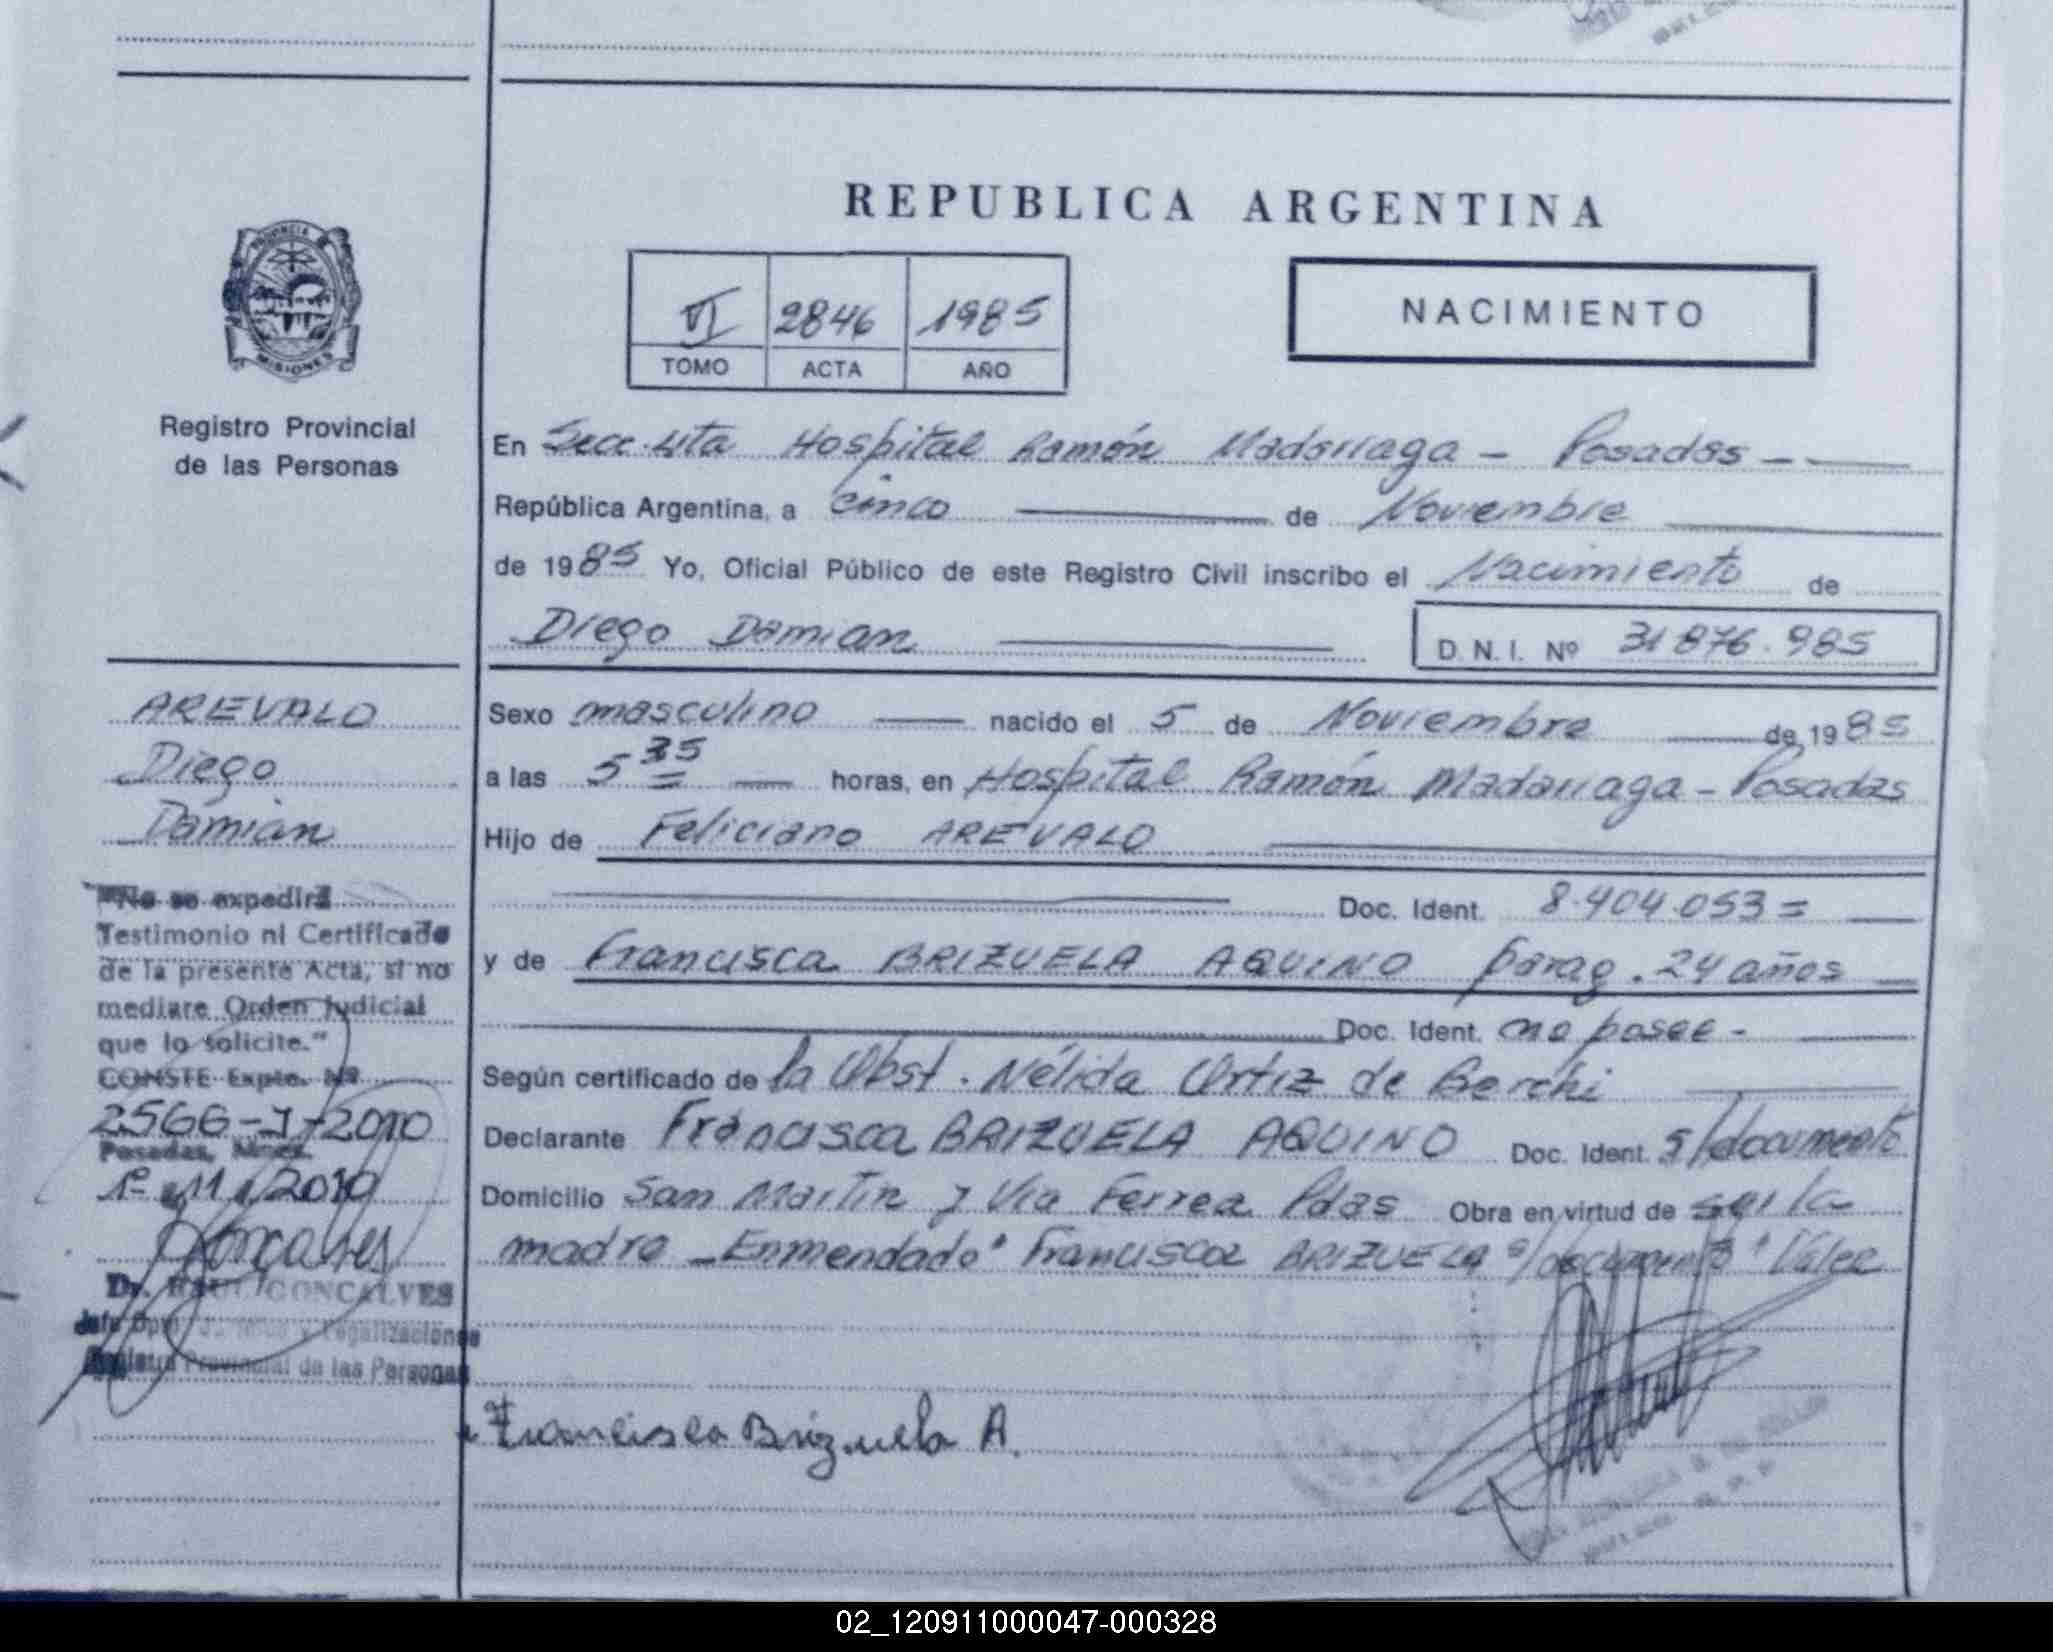 REPUBLICA ARGENTINA
VI 2846 1985
TOMO ACTA AÑO
NACIMIENTO
PROVINCIA DE
MISIONES
Registro Provincial
de las Personas
En Secc. 4ta Hospital Ramón Madariaga - Posadas -
República Argentina, a cinco de Noviembre
de 1985 Yo, Oficial Público de este Registro Civil inscribo el Nacimiento de
Diego Damian
D.N.I. Nº 31876.985
AREVALO
Diego
Damian
Sexo masculino nacido el 5 de Noviembre de 1985
a las 5 35 horas, en Hospital Ramón Madariaga - Posadas
Hijo de Feliciano AREVALO
Doc. Ident. 8.404.053=
y de Francisca BRIZUELA AQUINO parag. 24 años
Doc. Ident. no posee -
Según certificado de la Obst. Nélida Ortiz de Berchi
Declarante Francisca BRIZUELA AQUINO Doc. Ident. s/documento
Domicilio San Martin y Via Ferrea Pdas Obra en virtud de ser la
madre - Enmendado "Francisca BRIZUELA s/documento" Vale
Francisca Brizuela A.
"No se expedirá
Testimonio ni Certificado
de la presente Acta, si no
mediare Orden Judicial
que lo solicite."
CONSTE Expte. Nº
2566-J-2010
Posadas, Mnes.
1º 11 2010
Dr. RAUL GONCALVES
Registro Provincial de las Personas
02_120911000047-000328